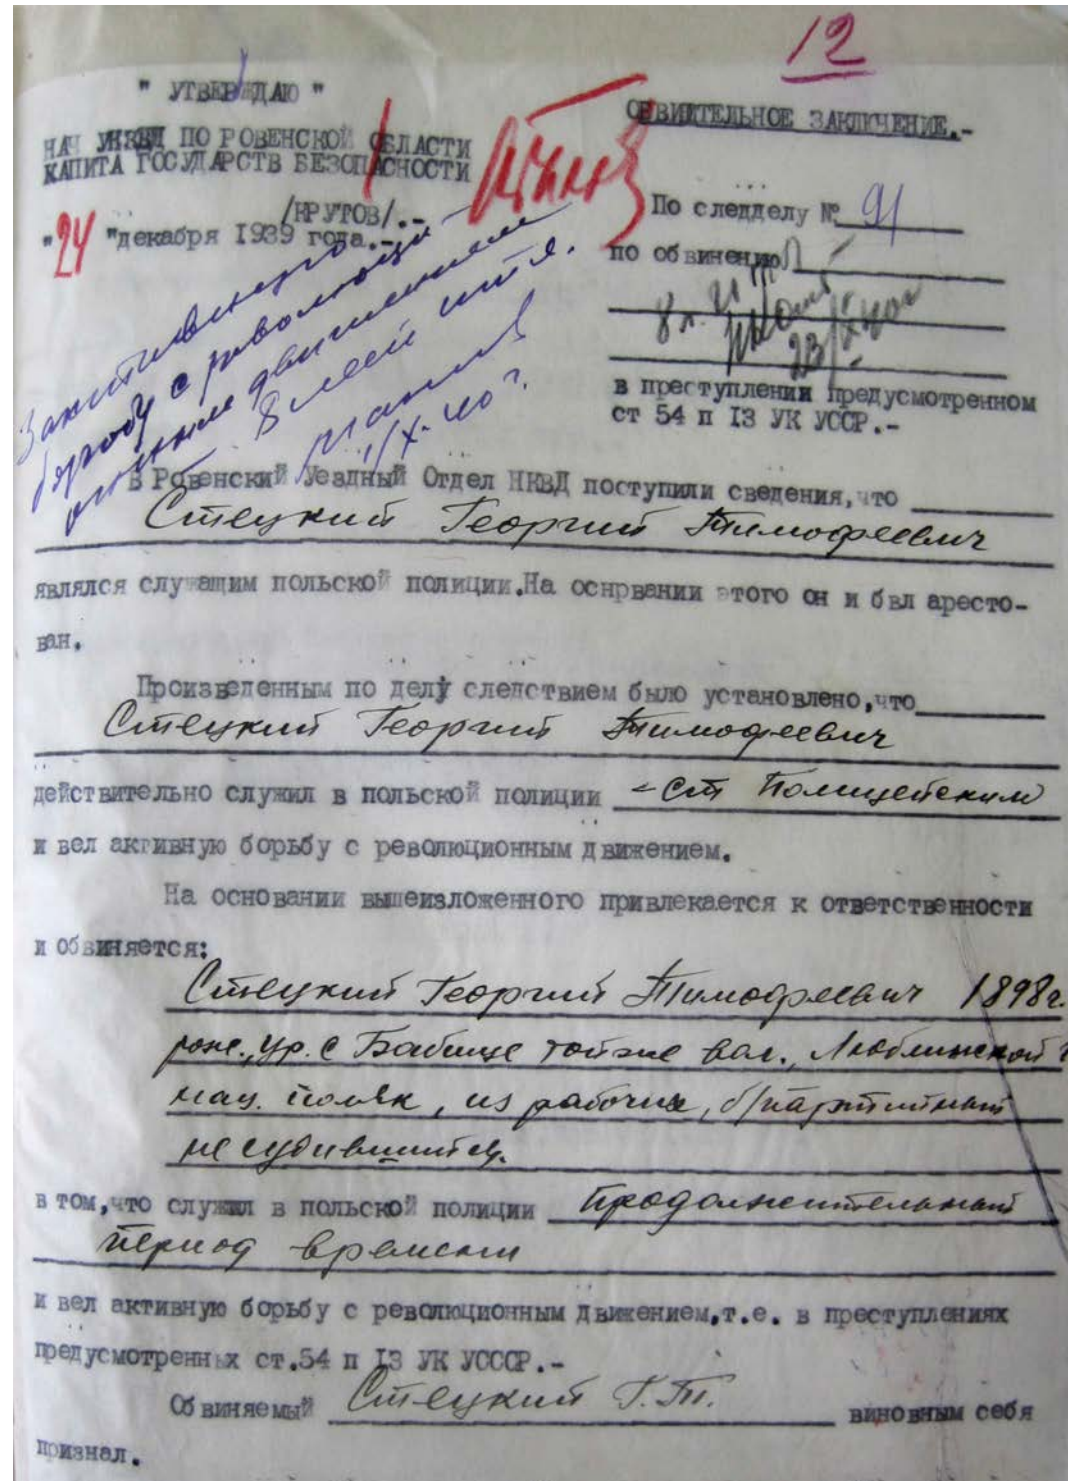 12
" УТВЕРЖДАЮ "
НАЧ УНКВД ПО РОВЕНСКОЙ ОБЛАСТИ
КАПИТА ГОСУДАРСТВ БЕЗОПАСНОСТИ
/КРУТОВ/.-
"24 "декабря 1939 года.-
ОБВИИТЕЛЬНОЕ ЗАКЛЮЧЕНИЕ.-
По следделу № 91
по обвинению
8 л. и т
23/X 40г
в преступлении предусмотренном
ст 54 п I3 УК УССР.-
За активную
борьбу с революци
онным движением
8 лет итл.
1/X-40 г.
В Ровенский Уездный Отдел НКВД поступили сведения,что
Стецкий Георгий Тимофеевич
являлся служащим польской полиции.На оснрвании этого он и бвл аресто-
ван.
Произведенным по делу следствием было установлено,что
Стецкий Георгий Тимофеевич
действительно служил в польской полиции Ст Полицейским
и вел активную борьбу с революционным движением.
На основании вышеизложенного привлекается к ответственности
и обвиняется:
Стецкий Георгий Тимофеевич 1898г.
рож., ур. с Бабице той же вол., Люблинской г
нац. поляк, из рабочих, б/партийный
не судившийся.
в том,что служил в польской полиции продолжительный
период времени
и вел активную борьбу с революционным движением,т.е. в преступлениях
предусмотренных ст.54 п I3 УК УСССР.-
Обвиняемый Стецкий Г.Т. виновным себя
признал.